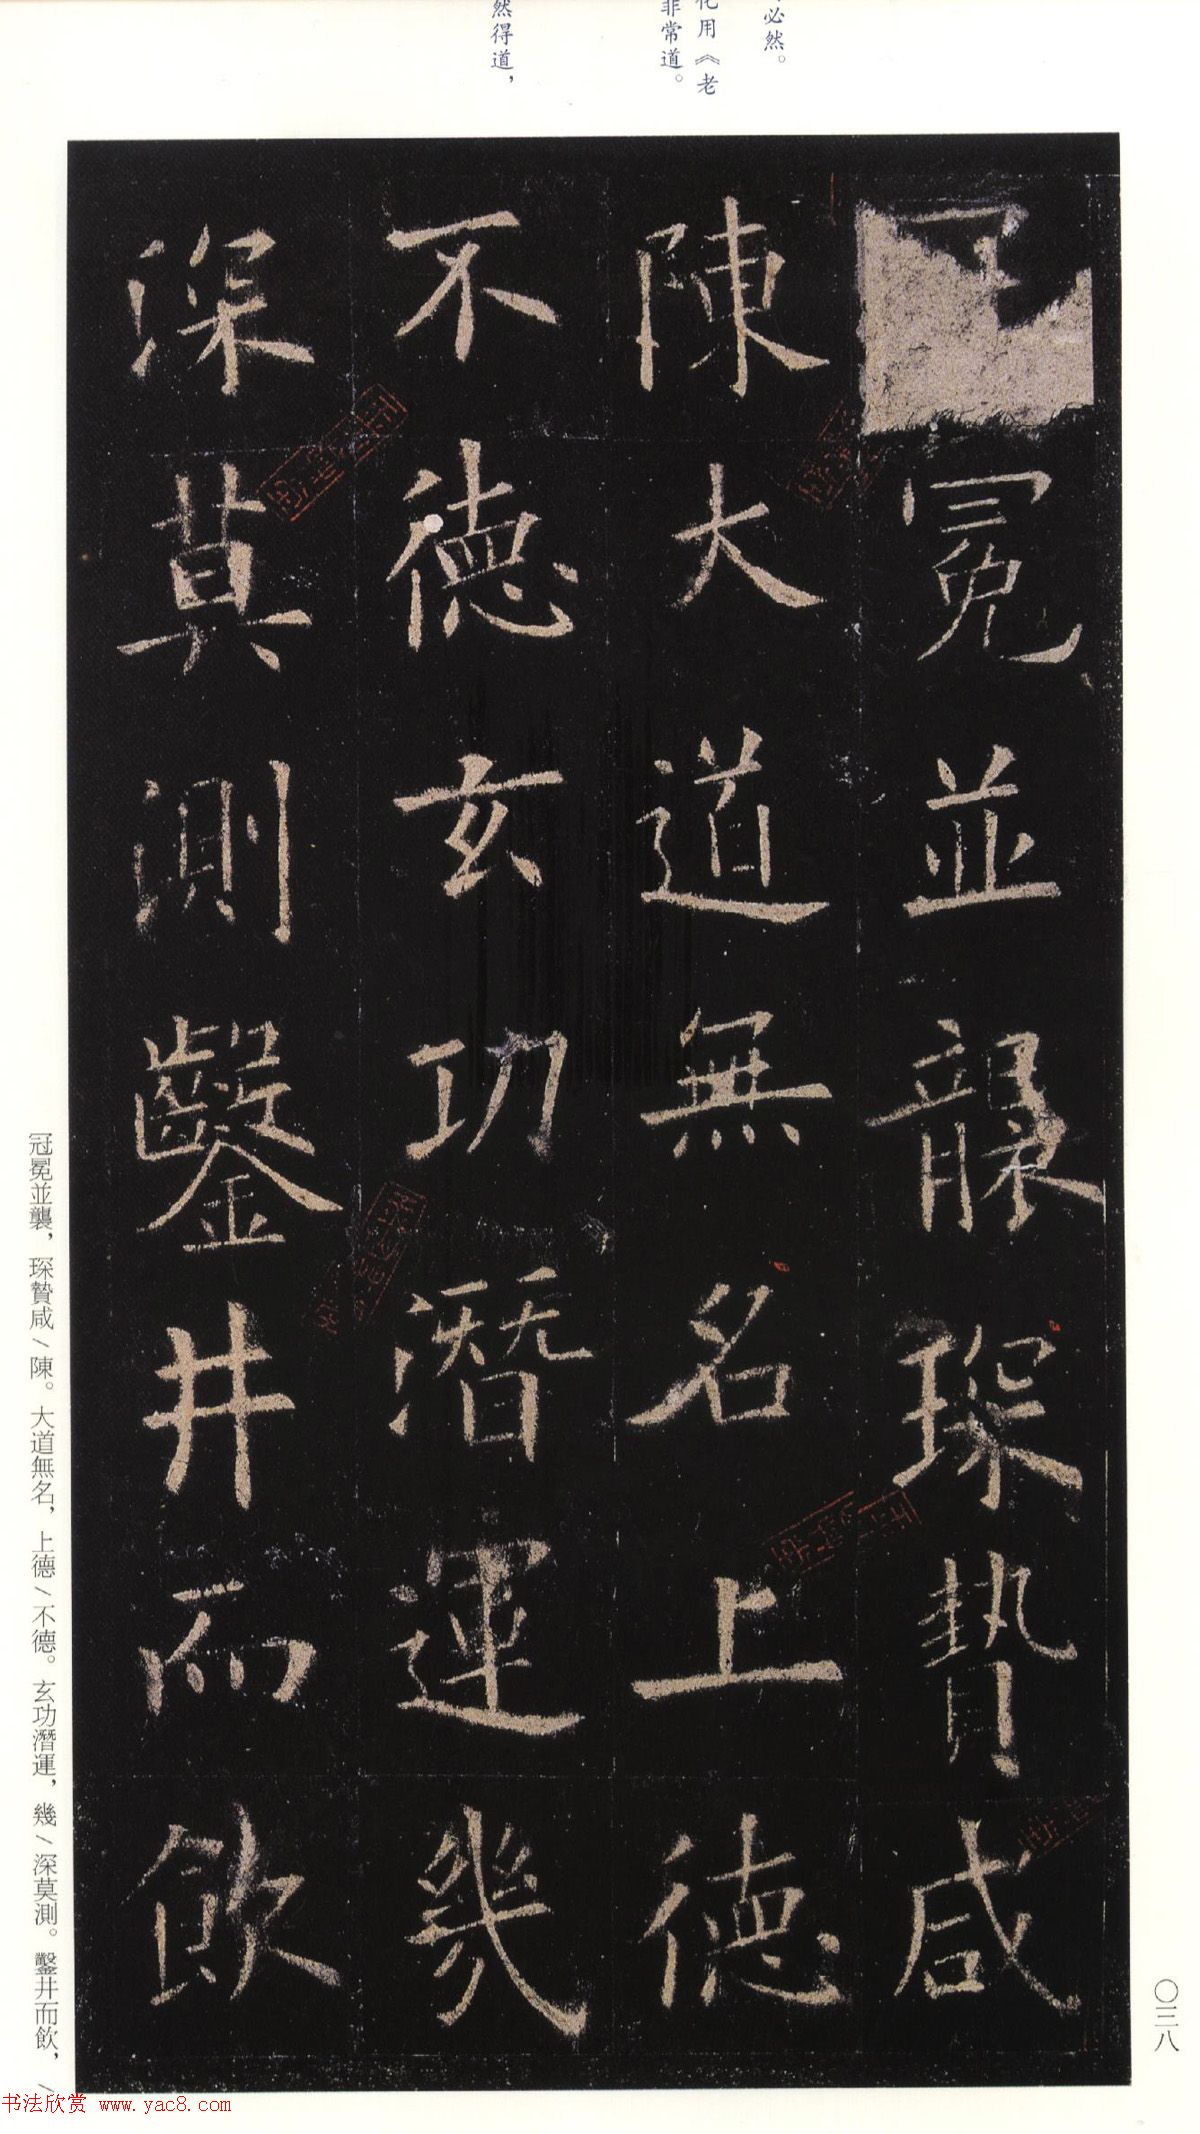 必然。
化用《老
非常道。
然得道，
冕並襲琛贄咸
陳大道無名上德
不德玄功潛運幾
深莫測鑿井而飲
冠冕並襲，琛贄咸/陳。大道無名，上德/不德。玄功潛運，幾/深莫測。鑿井而飲，/
〇三八
书法欣赏 www.yac8.com